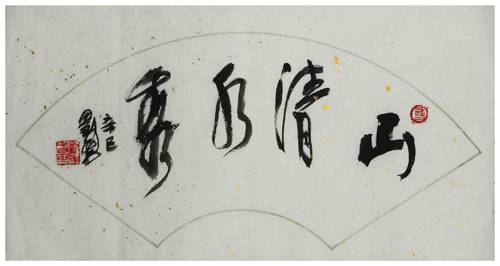 山清水秀
辛巳